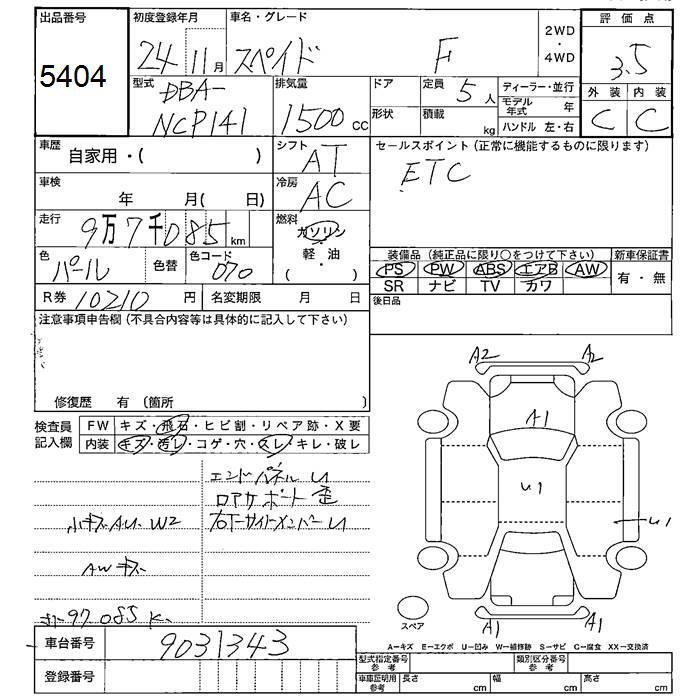 出品番号 初度登録年月 車名・グレード 2WD・4WD 評価点
5404 24 11月 スペイド F 3.5
型式 DBA-NCP141 排気量 1500cc ドア 定員 5人 ディーラー・並行 外装 内装
形状 積載 kg モデル年式 年 C C
ハンドル 左・右
車歴 自家用・( ) シフト AT セールスポイント (正常に機能するものに限ります)
車検 年 月( 日) 冷房 AC ETC
走行 9万7千085km 燃料 ガソリン・軽・油 ( )
色 パール 色替 色コード 070 装備品 (純正品に限り○をつけて下さい) 新車保証書
PS PW ABS エアB AW 有・無
SR ナビ TV カワ
R券 10210円 名変期限 月 日 後日品
注意事項申告欄 (不具合内容等は具体的に記入して下さい)
修復歴 有 (箇所 )
検査員記入欄 FW キズ・飛石・ヒビ割・リペア跡・X要
内装 キズ・汚レ・コゲ・穴・スレ・キレ・破レ
エンドパネル U
ロアサポート 歪
小キズ AU W2 右下サイドメンバー U
AW キズ
97.085K
A2 A2
A1
U1
U1
A1 A1
スペア
A―キズ E―エクボ U―凹み W―補修跡 S―サビ C―腐食 XX―交換済
車台番号 9031343
登録番号
型式指定番号参考 類別区分番号参考
車庫証明用参考 長さ cm 幅 cm 高さ cm